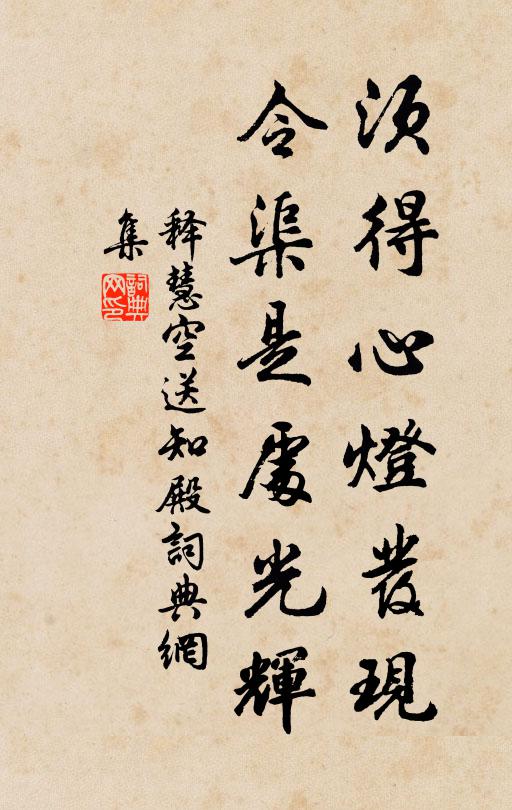 须得心燈發現
令渠是處光輝
释慧空送知殿詞典網
集
詞典網印